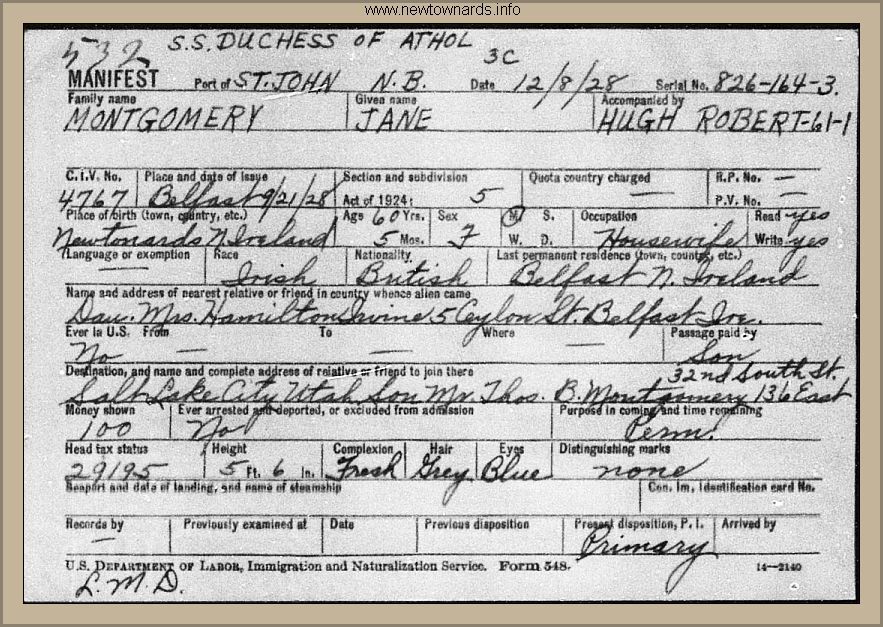 www.newtownards.info
532 S.S. DUCHESS OF ATHOL
3C
MANIFEST Port of ST. JOHN N.B. Date 12/8/28 Serial No. 826-164-3.
Family name Given name Accompanied by
MONTGOMERY JANE HUGH ROBERT-61-1
C.I.V. No. Place and date of issue Section and subdivision Quota country charged R.P. No. —
4767 Belfast 9/21/28 Act of 1924: 5 — P.V. No. —
Place of birth (town, country, etc.) Age 60 Yrs. Sex M. S. Occupation Read yes
Newtonards N. Ireland 5 Mos. F W. D. Housewife Write yes
Language or exemption Race Nationality Last permanent residence (town, country, etc.)
— Irish British Belfast N. Ireland
Name and address of nearest relative or friend in country whence alien came
Dau. Mrs. Hamilton Irvine 5 Ceylon St. Belfast Ire.
Ever in U.S. From To Where Passage paid by
No — — — Son
Destination, and name and complete address of relative or friend to join there 32nd South St.
Salt Lake City Utah Son Mr. Thos. B. Montgomery 136 East
Money shown Ever arrested and deported, or excluded from admission Purpose in coming and time remaining
100 No Perm.
Head tax status Height Complexion Hair Eyes Distinguishing marks
29195 5 Ft. 6 In. Fresh Grey Blue none
Seaport and date of landing, and name of steamship Con. Im. Identification card No.
Records by Previously examined at Date Previous disposition Present disposition, P. I. Arrived by
— Primary
U.S. DEPARTMENT OF LABOR, Immigration and Naturalization Service. Form 548. 14—2140
L.M.D.